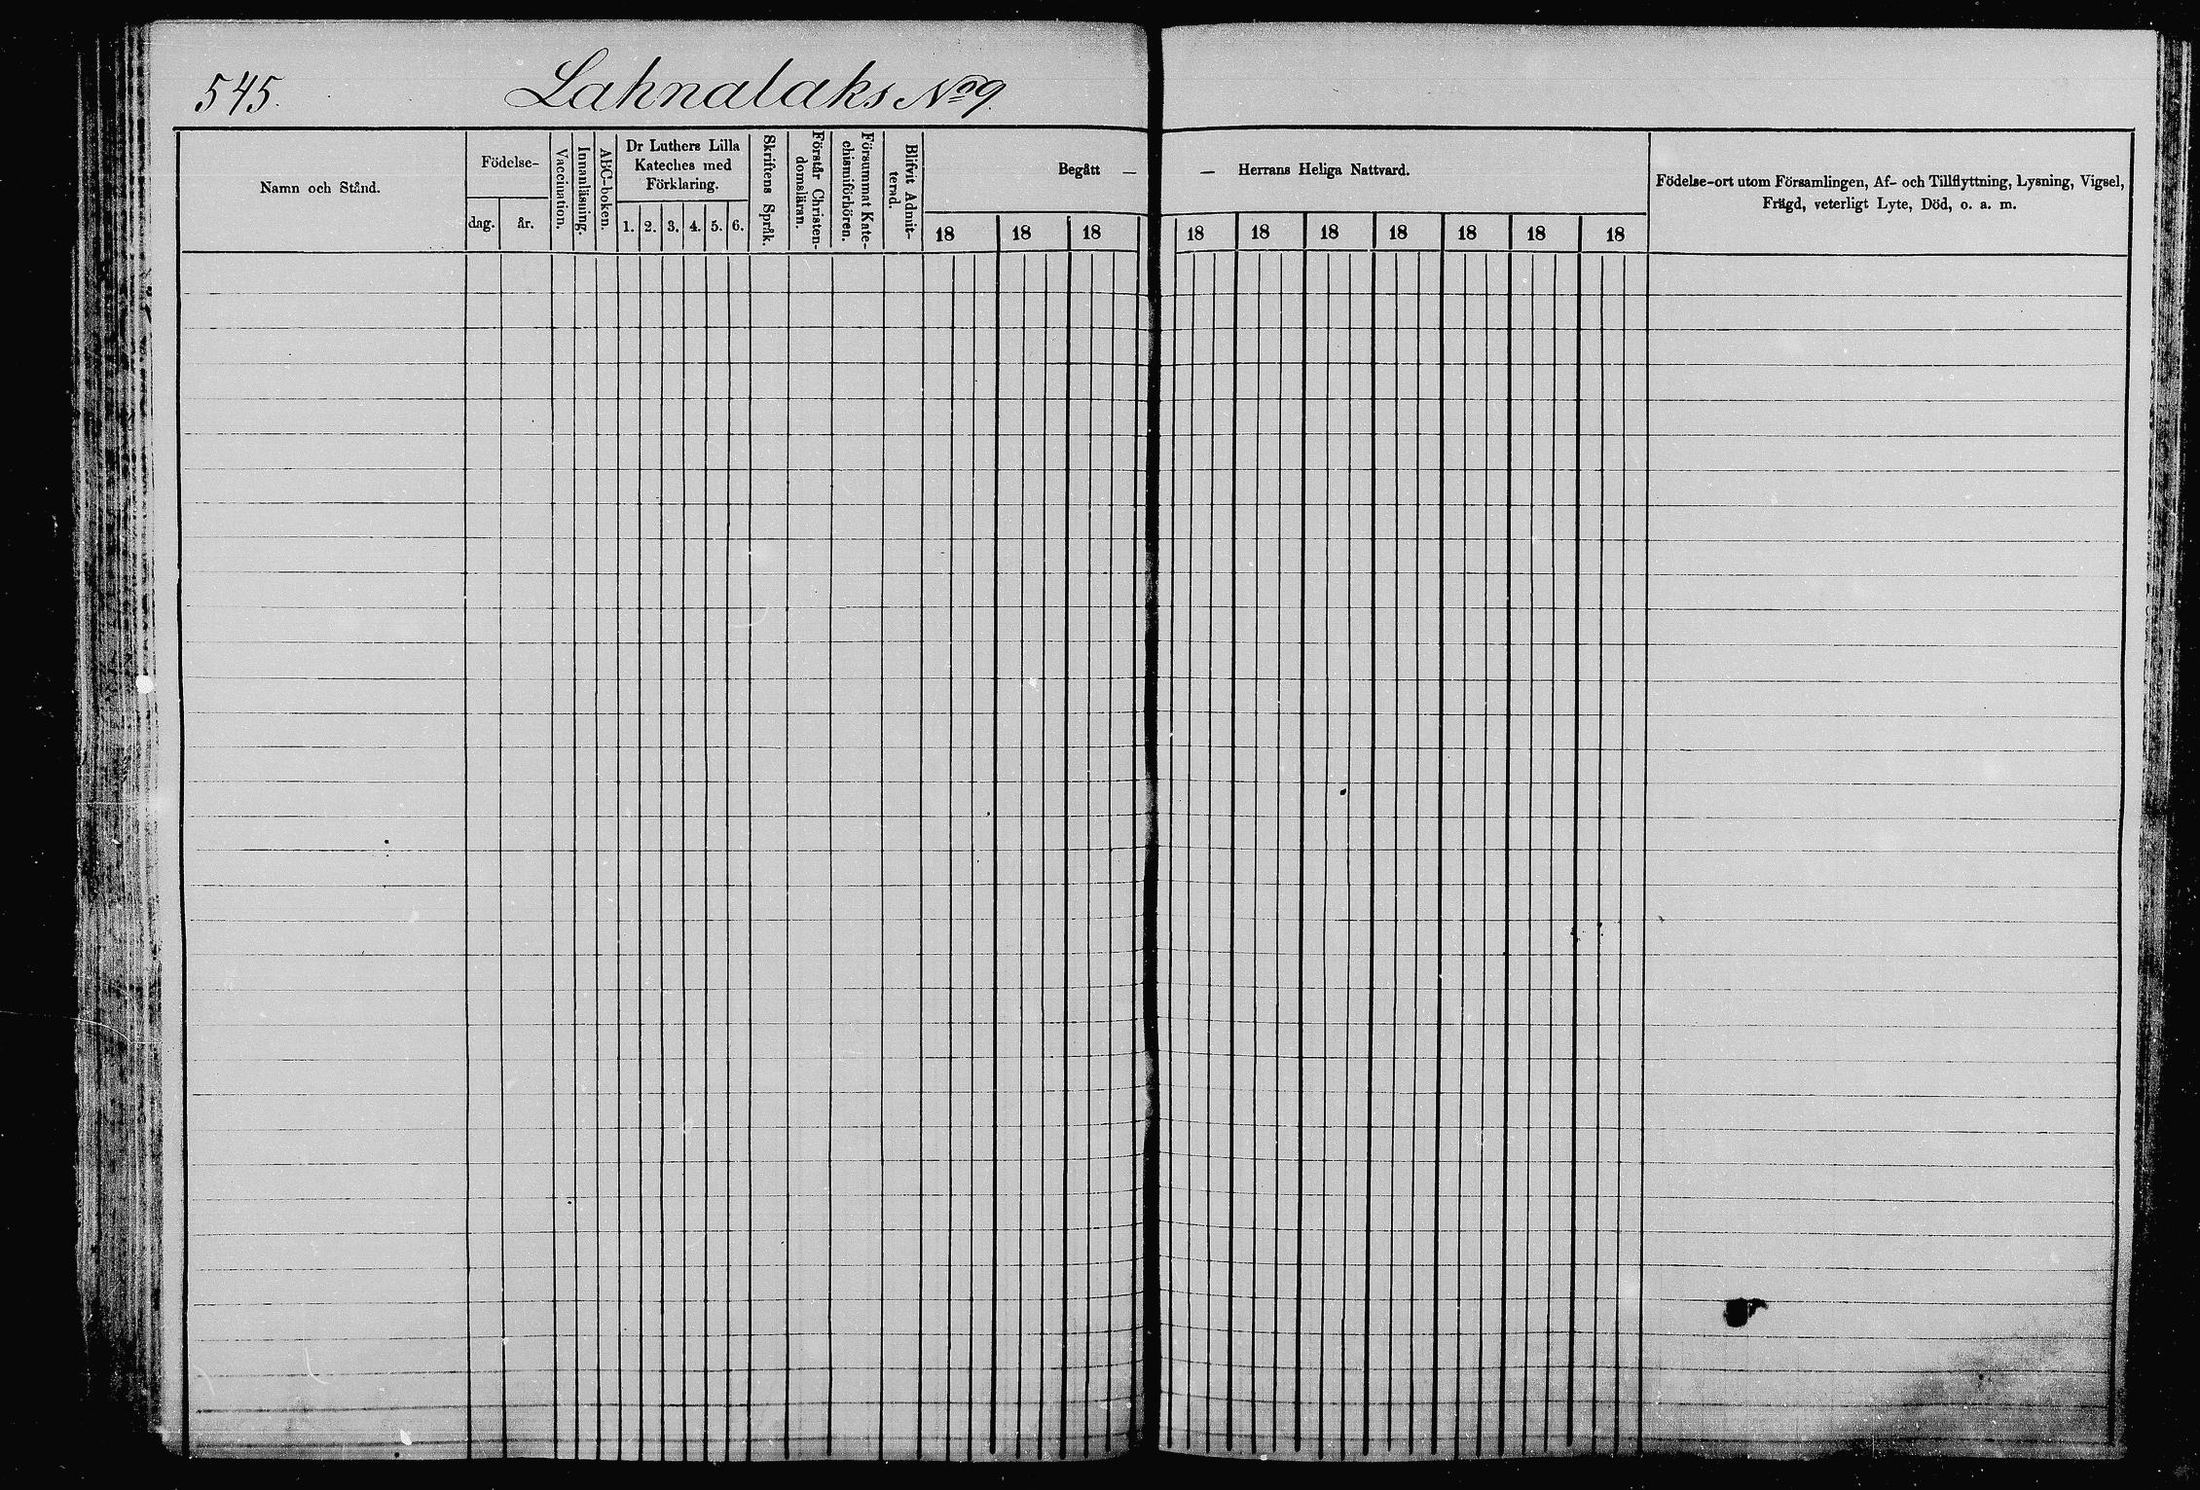 545. Lahnalaks No 9.
Namn och Stånd.
Födelse-
dag. år.
Vaccination.
Innanläsning.
ABC-boken.
Dr Luthers Lilla
Kateches med
Förklaring.
1. 2. 3. 4. 5. 6.
Skriftens Språk.
Förstår Christen-
domsläran.
Försummat Kate-
chismiförhören.
Blifvit Admit-
terad.
Begått — — Herrans Heliga Nattvard.
18 18 18 18 18 18 18 18 18 18
Födelse-ort utom Församlingen, Af- och Tillflyttning, Lysning, Vigsel,
Frägd, veterligt Lyte, Död, o. a. m.